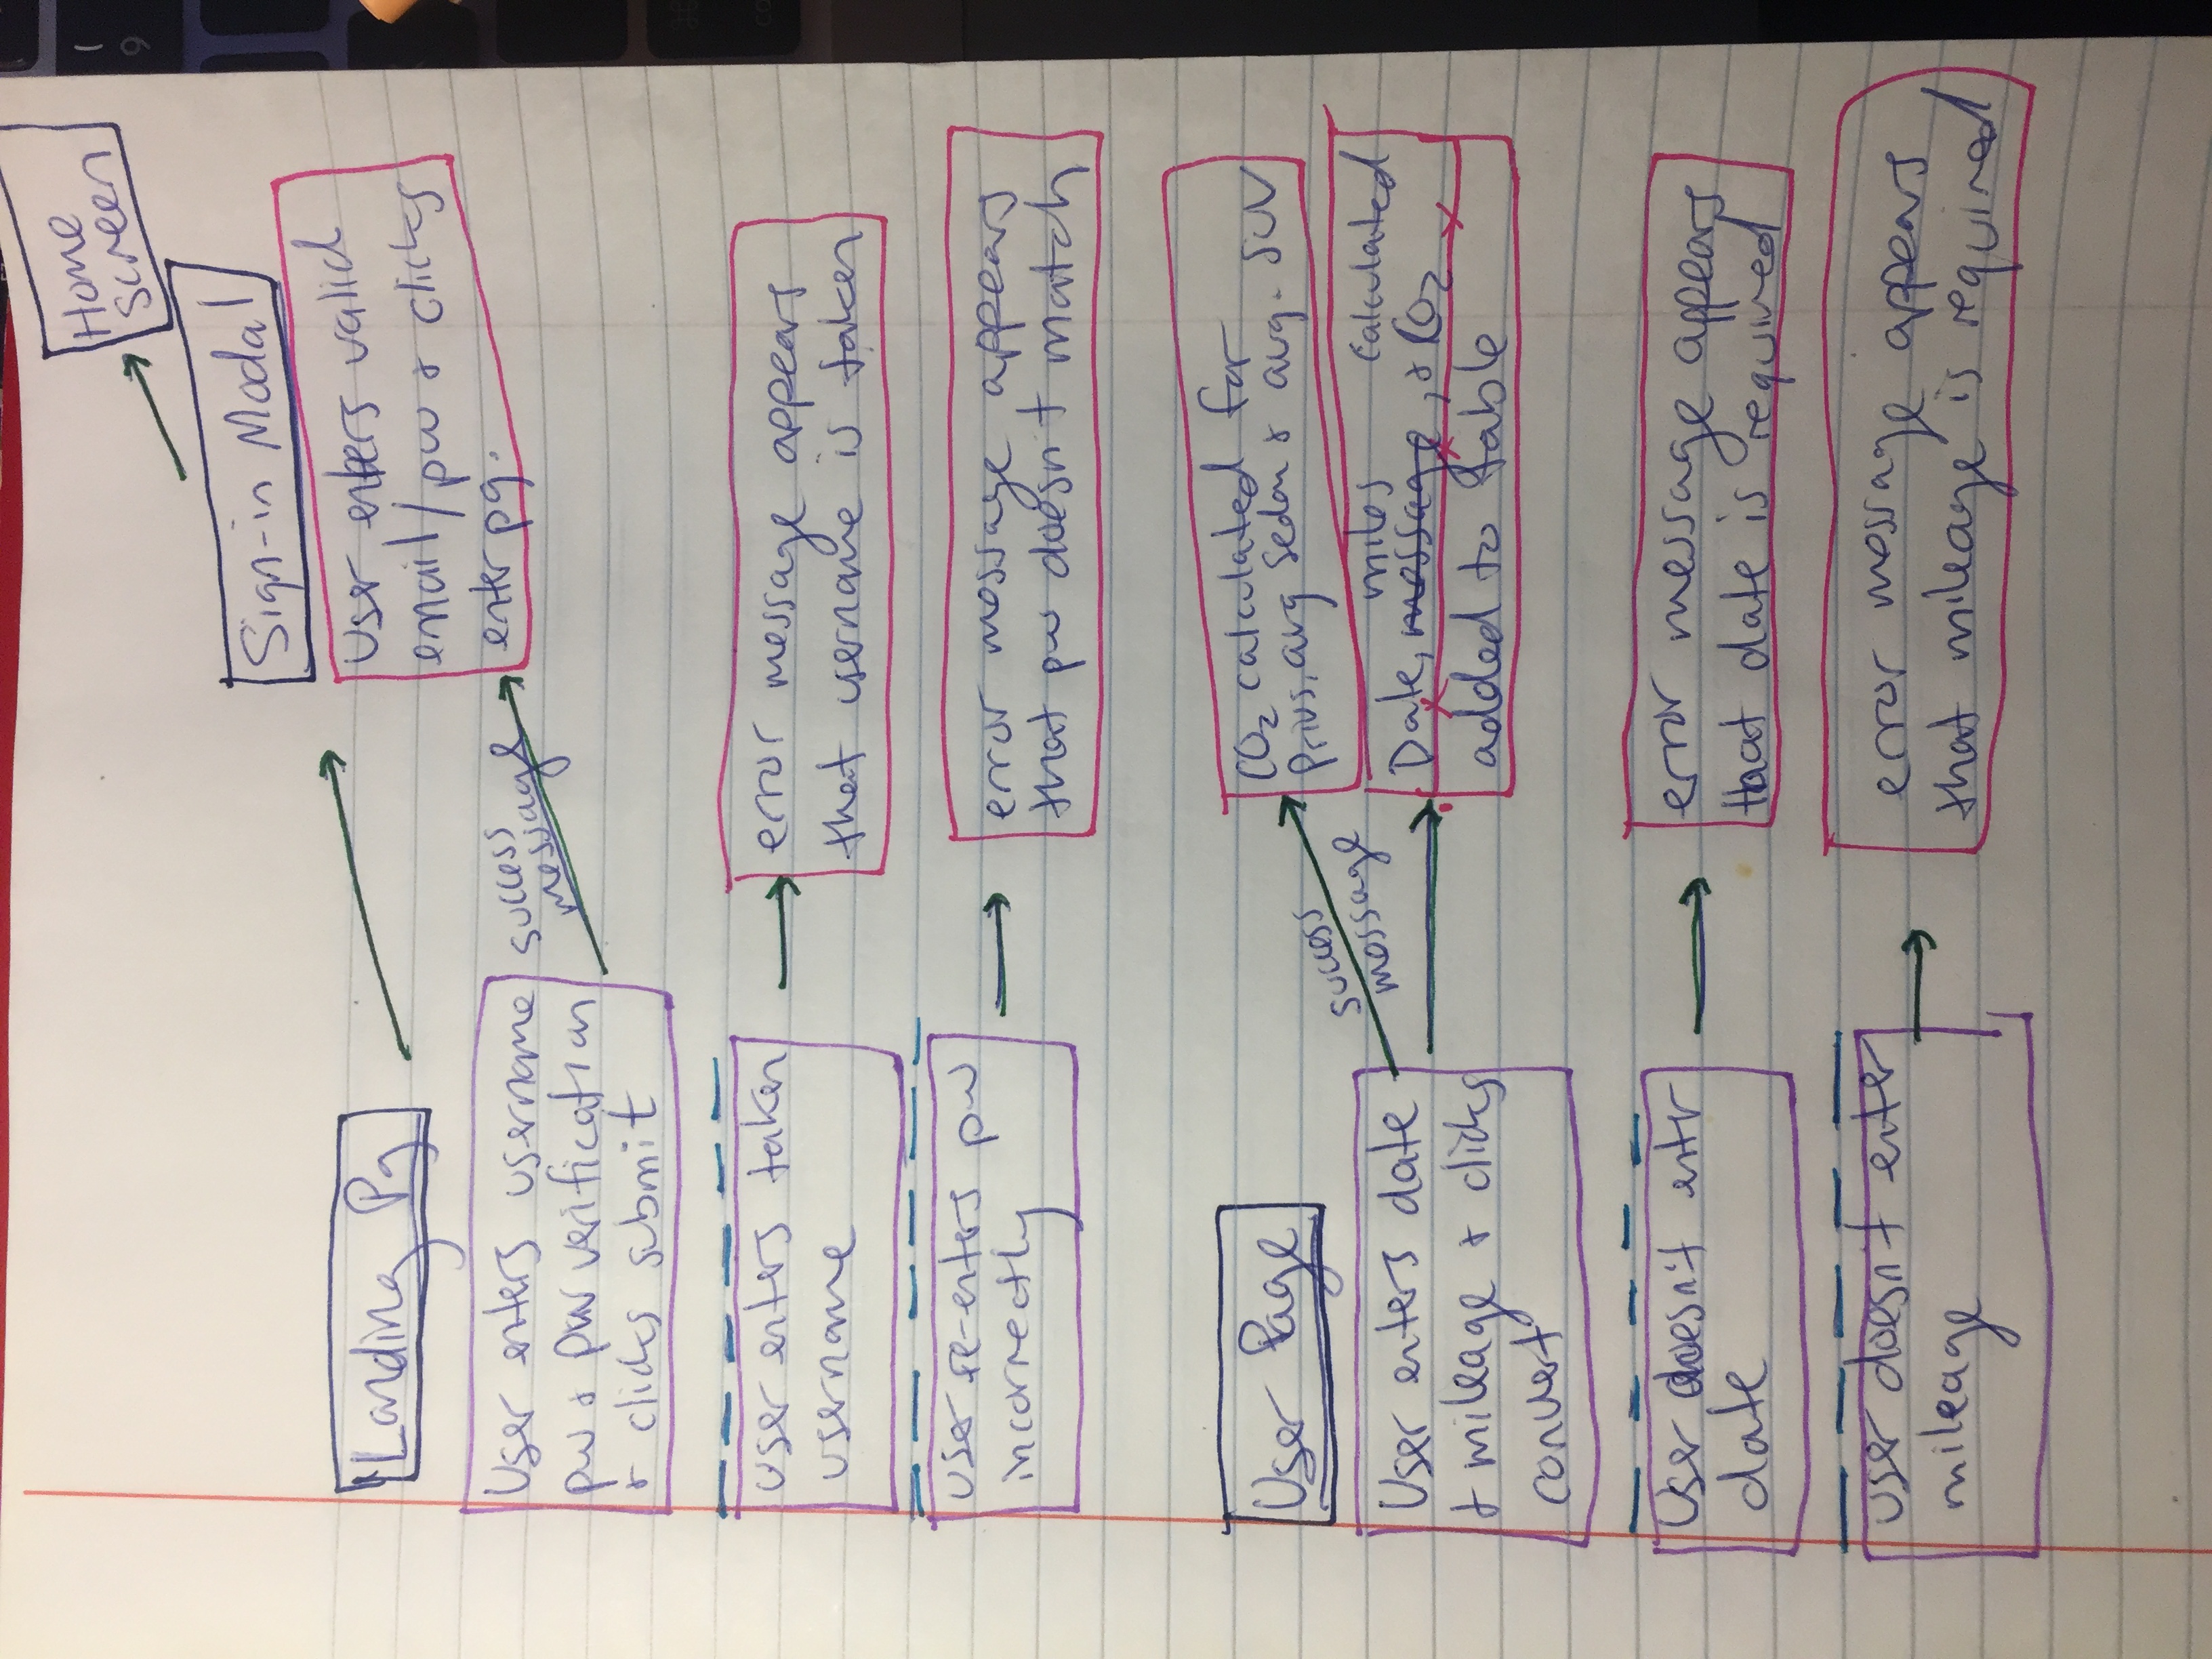 Home
Screen
Sign-in Modal
Landing Pg
user enters valid
email/pw & clicks
enter pg.
User enters username
pw & pw verification
& clicks submit
success
message
user enters taken
username
error message appears
that username is taken
user re-enters pw
incorrectly
error message appears
that pw doesn't match
User Page
CO₂ calculated for
Prius, avg sedan & avg. SUV
success
message
User enters date
+ mileage & clicks
convert
miles calculated
Date, message, & CO₂
added to table
User doesn't entr
date
error message appears
that date is required
user doesn't enter
mileage
error message appears
that mileage is required